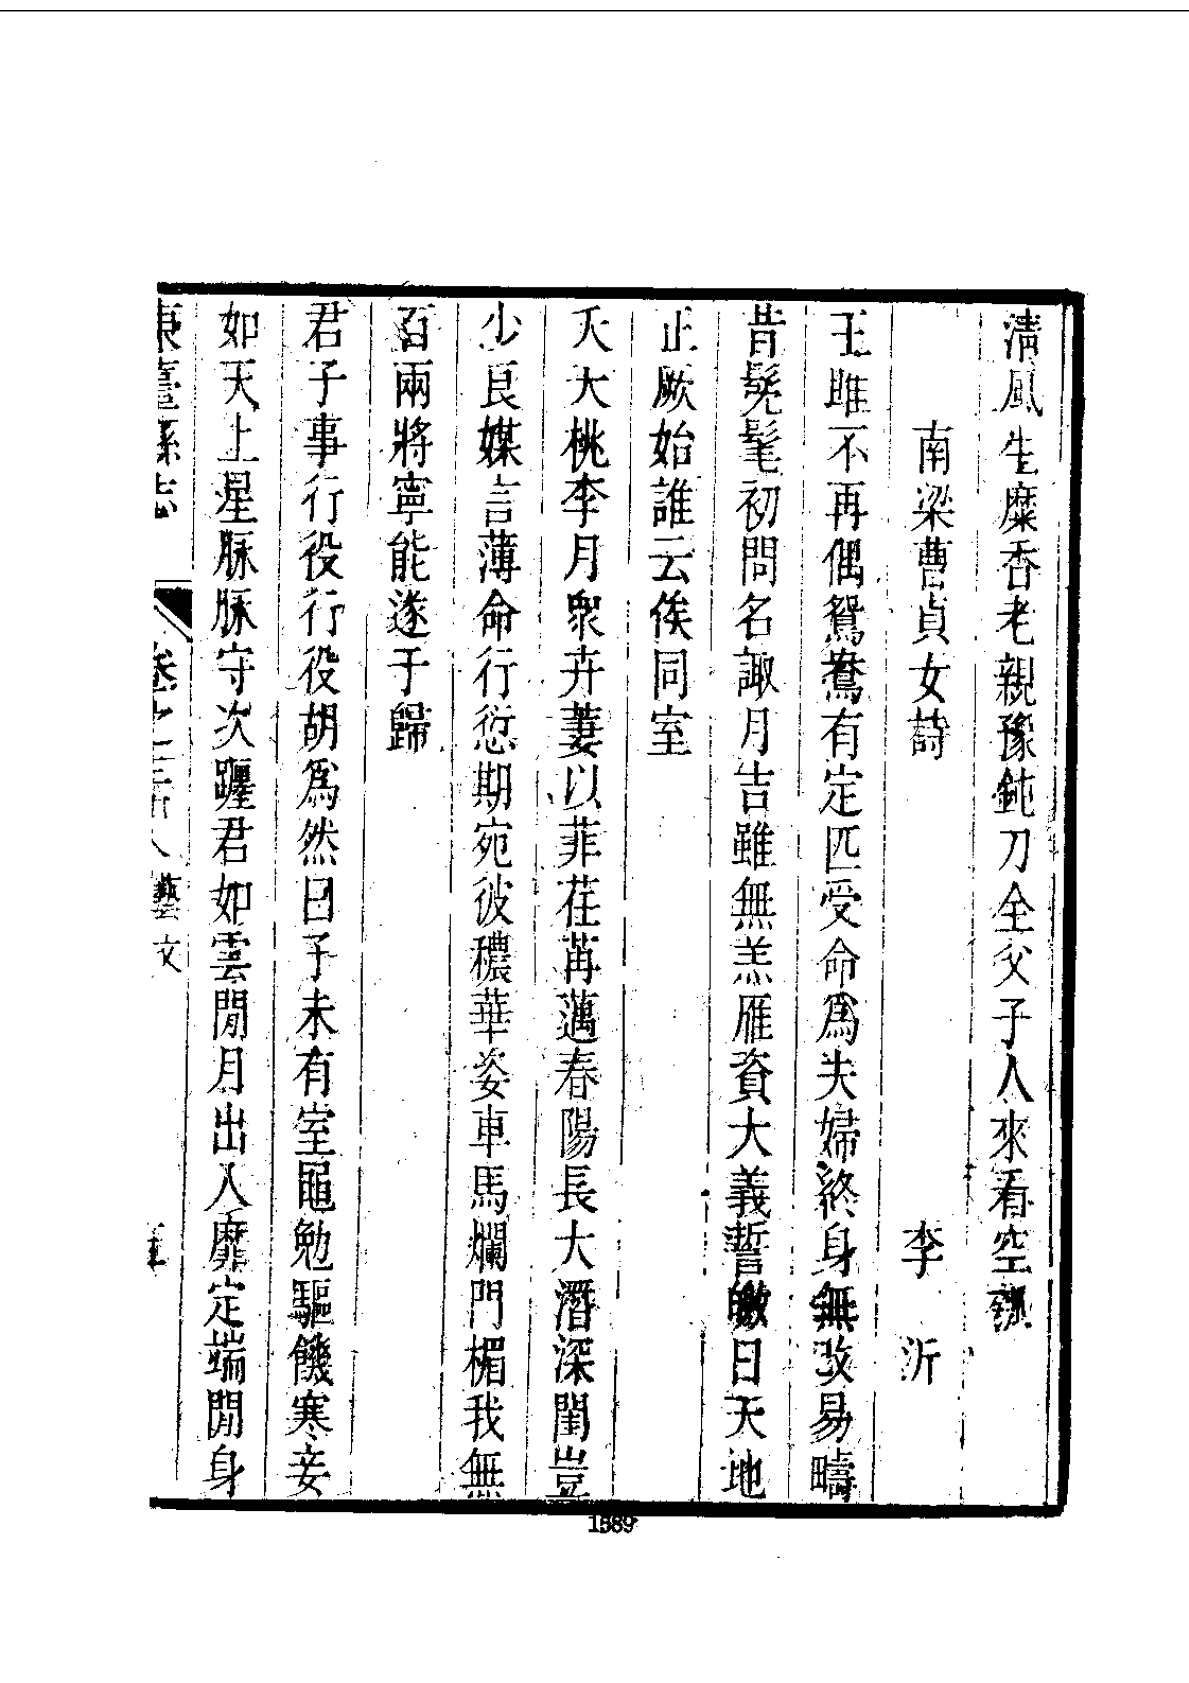 清風生糜香老親豫鈍刀全父子人來看空
南梁曹貞女詩 李 沂
王雎不再偶鴛鴦有定匹受命爲夫婦終身無改易疇
昔髧髦初問名諏月吉雖無羔雁資大義誓皦日天地
正厥始誰云俟同室
夭夭桃李月衆卉萋以菲荏苒邁春陽長大潛深閨豈
少良媒言薄命行愆期宛彼穠華姿車馬爛門楣我無
百兩將寧能遂于歸
君子事行役行役胡爲然曰子未有室黽勉驅饑寒妾
如天上星脈脈守次躔君如雲閒月出入靡定端閒身
東臺縣志 卷之三十八 藝文 五
1589